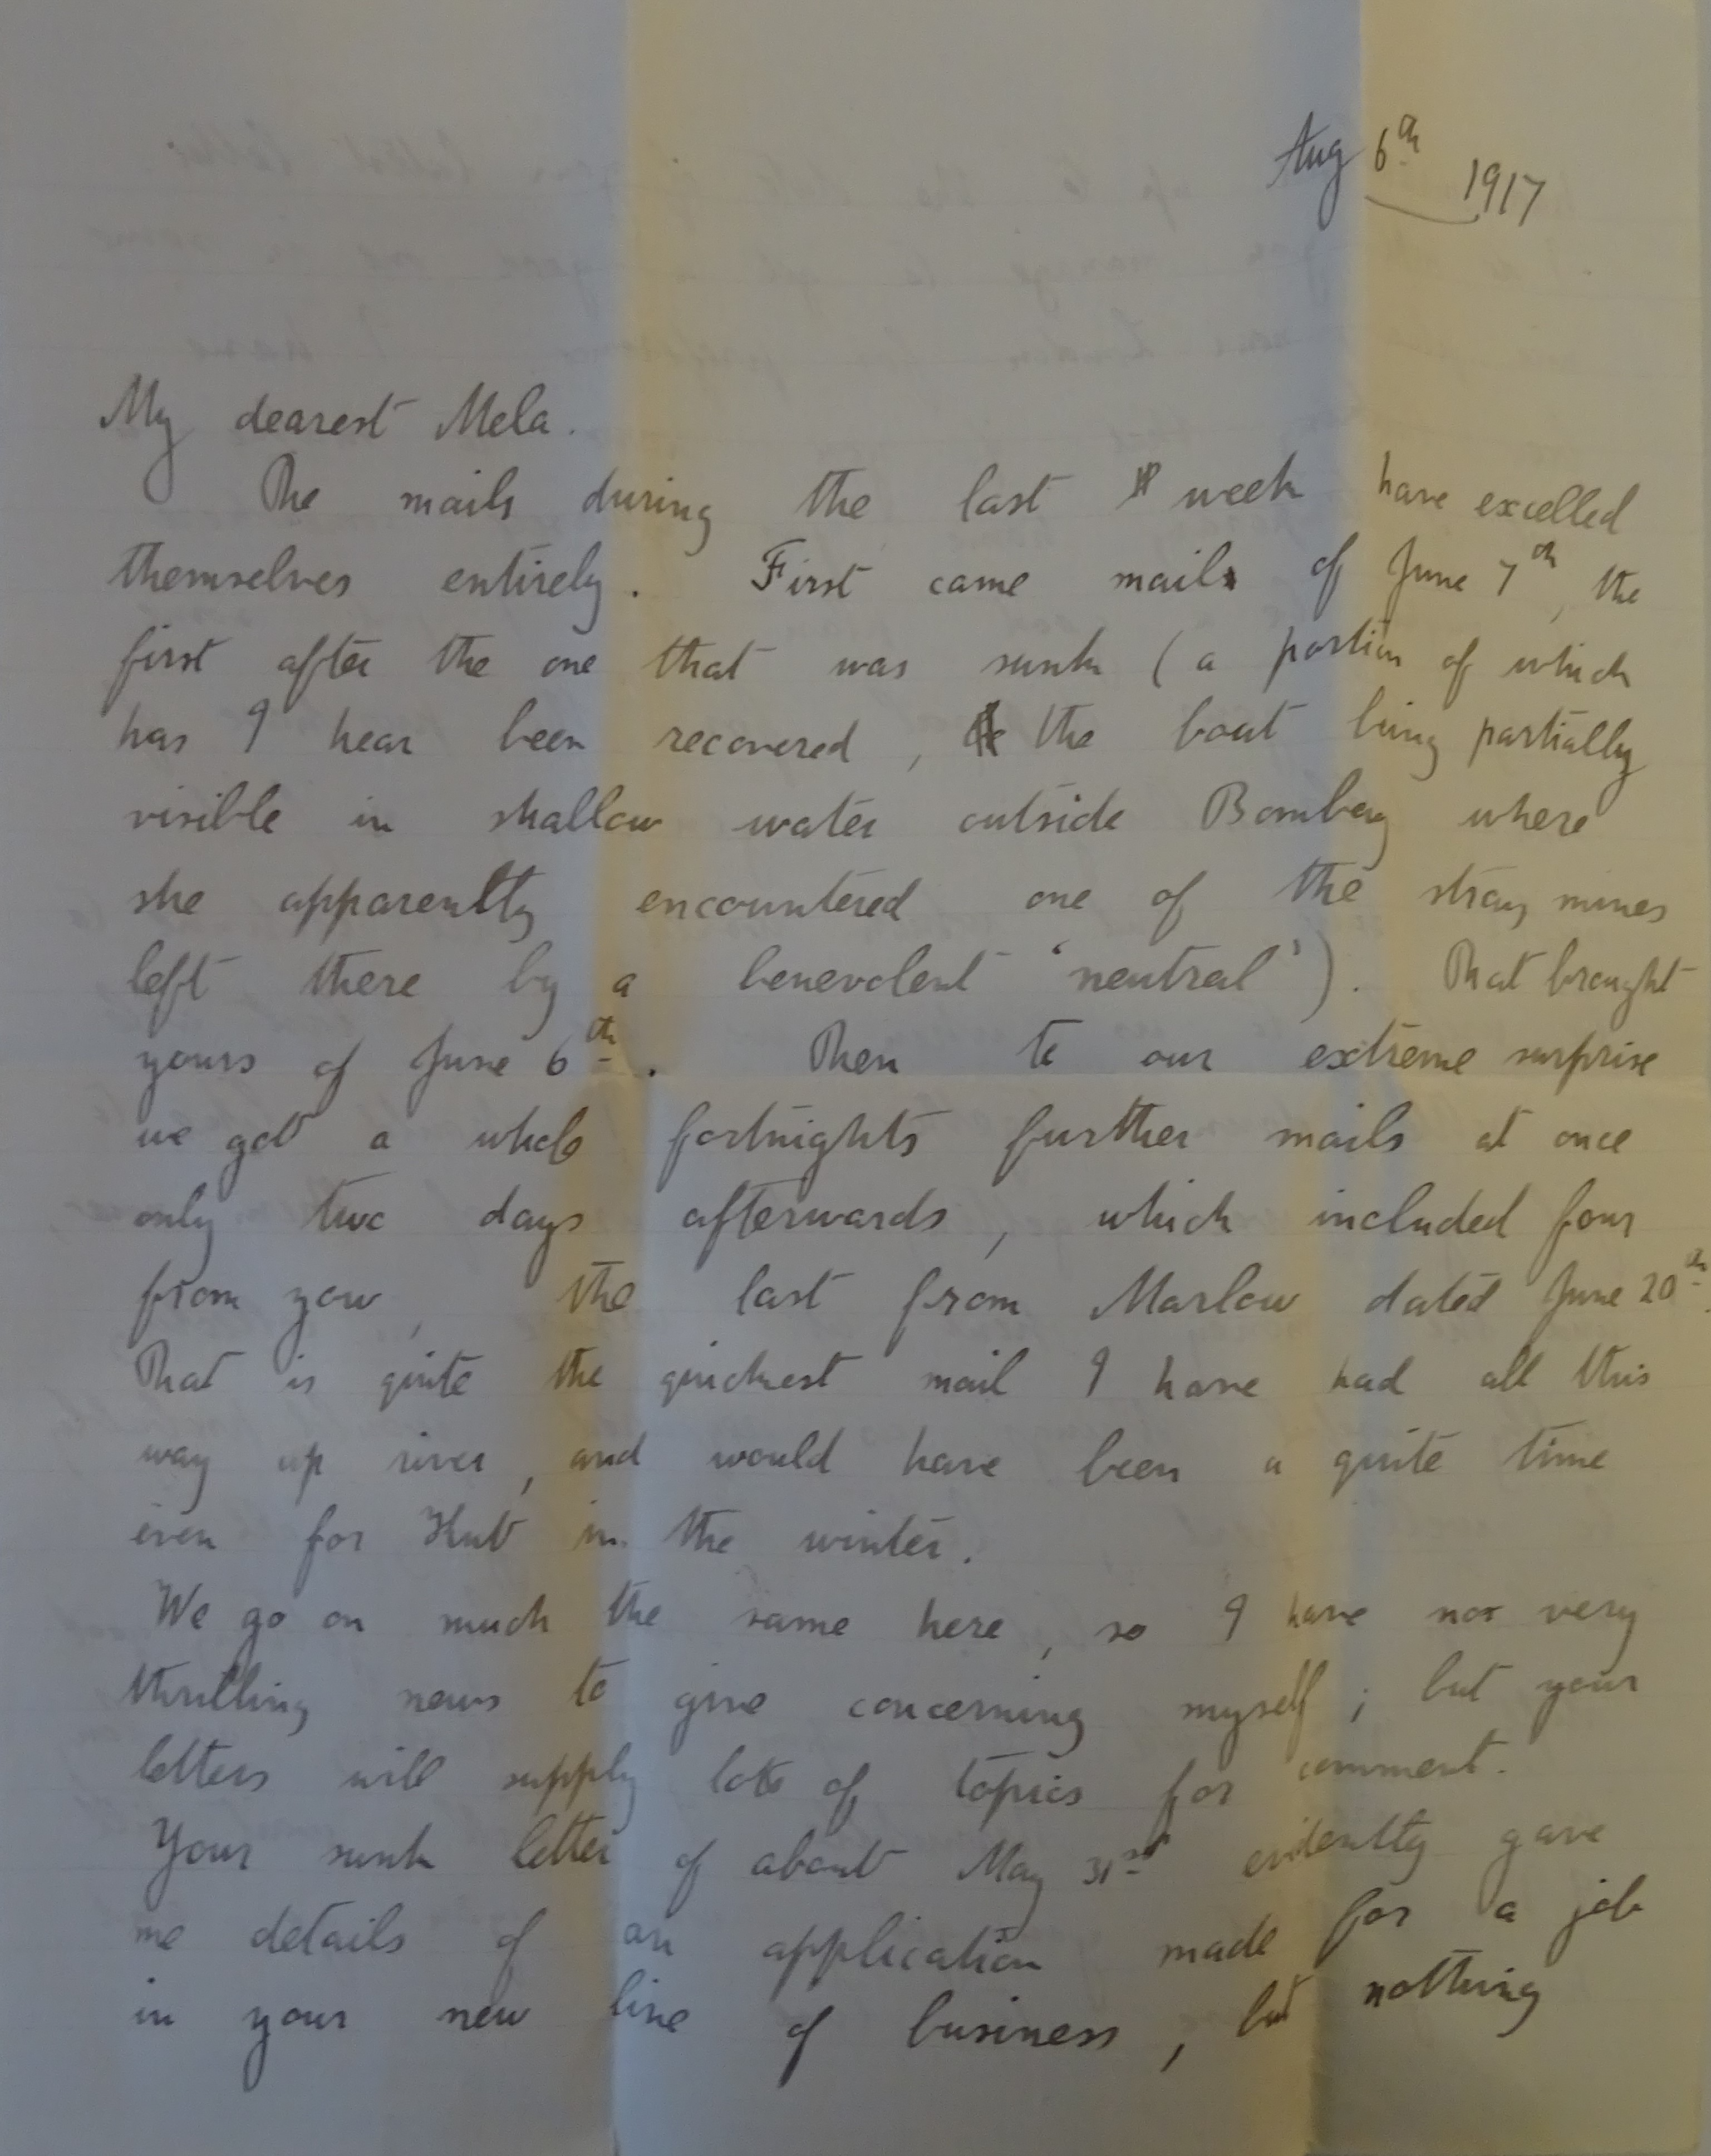 Aug 6th 1917
My dearest Mela.
The mails during the last week have excelled
themselves entirely. First came mail of June 7th, the
first after the one that was sunk (a portion of which
has I hear been recovered, the boat being partially
visible in shallow water outside Bombay where
she apparently encountered one of the stray mines
left there by a benevolent 'neutral'). That brought
yours of June 6th. Then to our extreme surprise
we got a whole fortnights further mails at once
only two days afterwards, which included four
from you, the last from Marlow dated June 20th.
That is quite the quickest mail I have had all this
way up river, and would have been a quite time
even for Kut in the winter.
We go on much the same here, so I have not very
thrilling news to give concerning myself; but your
letters will supply lots of topics for comment.
Your sunk letter of about May 31st evidently gave
me details of an application made for a job
in your new line of business, but nothing